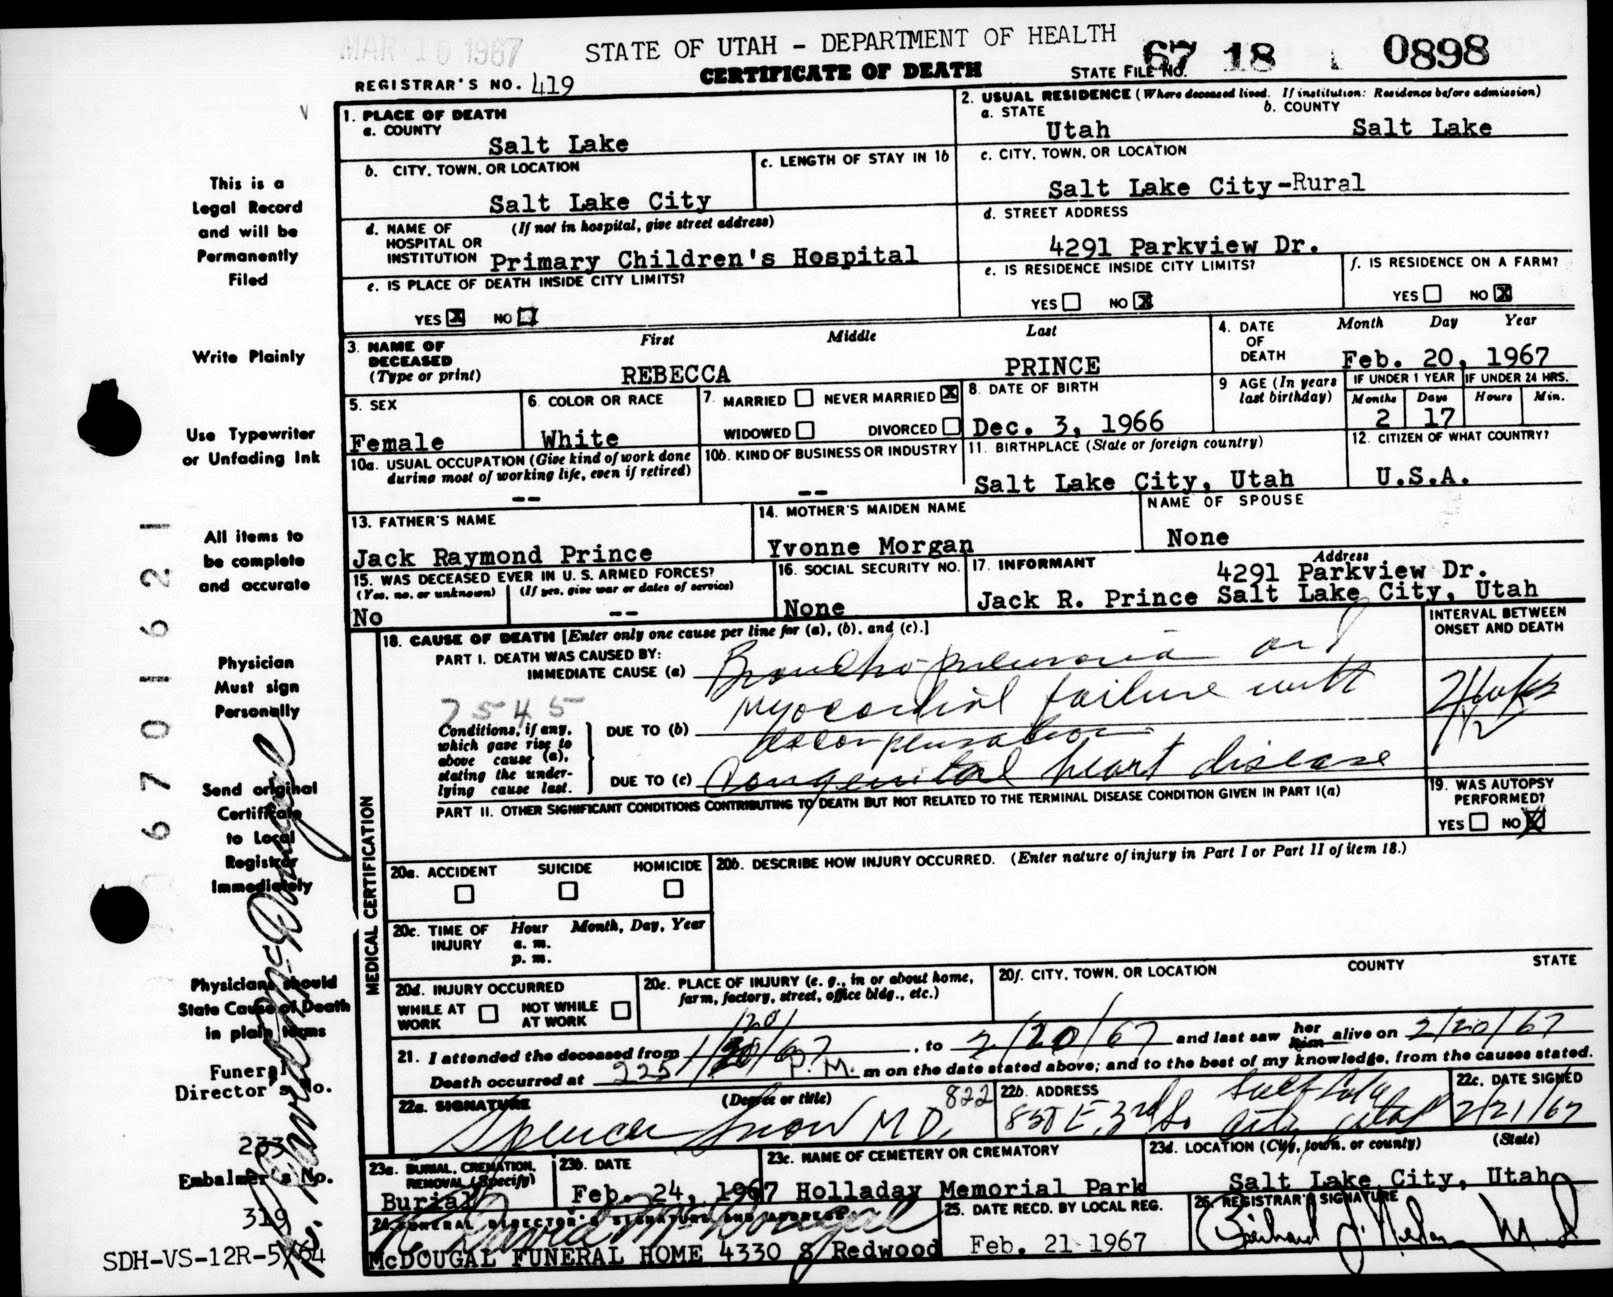 MAR 10 1967
STATE OF UTAH - DEPARTMENT OF HEALTH
CERTIFICATE OF DEATH
STATE FILE NO. 67 18 0898
REGISTRAR'S NO. 419
1. PLACE OF DEATH
a. COUNTY
Salt Lake
2. USUAL RESIDENCE (Where deceased lived. If institution: Residence before admission)
a. STATE
Utah
b. COUNTY
Salt Lake
b. CITY, TOWN, OR LOCATION
Salt Lake City
c. LENGTH OF STAY IN 1b
c. CITY, TOWN, OR LOCATION
Salt Lake City-Rural
d. NAME OF HOSPITAL OR INSTITUTION
(If not in hospital, give street address)
Primary Children's Hospital
d. STREET ADDRESS
4291 Parkview Dr.
e. IS PLACE OF DEATH INSIDE CITY LIMITS?
YES [X] NO [ ]
e. IS RESIDENCE INSIDE CITY LIMITS?
YES [ ] NO [X]
f. IS RESIDENCE ON A FARM?
YES [ ] NO [X]
3. NAME OF DECEASED
(Type or print)
First Middle Last
REBECCA PRINCE
4. DATE OF DEATH
Month Day Year
Feb. 20, 1967
5. SEX
Female
6. COLOR OR RACE
White
7. MARRIED [ ] NEVER MARRIED [X]
WIDOWED [ ] DIVORCED [ ]
8. DATE OF BIRTH
Dec. 3, 1966
9 AGE (In years last birthday)
IF UNDER 1 YEAR IF UNDER 24 HRS.
Months Days Hours Min.
2 17
10a. USUAL OCCUPATION (Give kind of work done during most of working life, even if retired)
--
10b. KIND OF BUSINESS OR INDUSTRY
--
11. BIRTHPLACE (State or foreign country)
Salt Lake City, Utah
12. CITIZEN OF WHAT COUNTRY?
U.S.A.
13. FATHER'S NAME
Jack Raymond Prince
14. MOTHER'S MAIDEN NAME
Yvonne Morgan
NAME OF SPOUSE
None
15. WAS DECEASED EVER IN U. S. ARMED FORCES?
(Yes, no, or unknown) (If yes, give war or dates of service)
No --
16. SOCIAL SECURITY NO.
None
17. INFORMANT Address
4291 Parkview Dr.
Jack R. Prince Salt Lake City, Utah
MEDICAL CERTIFICATION
18. CAUSE OF DEATH [Enter only one cause per line for (a), (b), and (c).]
INTERVAL BETWEEN ONSET AND DEATH
PART I. DEATH WAS CAUSED BY:
IMMEDIATE CAUSE (a) Broncho-pneumonia and
7545
Myocardial failure with
Conditions, if any, which gave rise to above cause (a), stating the underlying cause last.
DUE TO (b) decompensation
DUE TO (c) Congenital heart disease
PART II. OTHER SIGNIFICANT CONDITIONS CONTRIBUTING TO DEATH BUT NOT RELATED TO THE TERMINAL DISEASE CONDITION GIVEN IN PART I(a)
19. WAS AUTOPSY PERFORMED?
YES [ ] NO [X]
20a. ACCIDENT SUICIDE HOMICIDE
20b. DESCRIBE HOW INJURY OCCURRED. (Enter nature of injury in Part I or Part II of item 18.)
20c. TIME OF INJURY
Hour Month, Day, Year
a. m.
p. m.
20d. INJURY OCCURRED
WHILE AT WORK [ ] NOT WHILE AT WORK [ ]
20e. PLACE OF INJURY (e. g., in or about home, farm, factory, street, office bldg., etc.)
20f. CITY, TOWN, OR LOCATION COUNTY STATE
21. I attended the deceased from 1/20/67, to 2/20/67 and last saw her him alive on 2/20/67
Death occurred at 225 P. M. m on the date stated above; and to the best of my knowledge, from the causes stated.
22a. SIGNATURE (Degree or title) 822
Spencer Snow M D.
22b. ADDRESS
E. 3rd So Salt Lake City Utah
22c. DATE SIGNED
2/21/67
23a. BURIAL, CREMATION, REMOVAL (Specify)
Burial
23b. DATE
Feb. 24, 1967
23c. NAME OF CEMETERY OR CREMATORY
Holladay Memorial Park
23d. LOCATION (City, town, or county) (State)
Salt Lake City, Utah
24. FUNERAL DIRECTOR'S SIGNATURE AND ADDRESS
McDOUGAL FUNERAL HOME 4330 S Redwood
25. DATE RECD. BY LOCAL REG.
Feb. 21 1967
26. REGISTRAR'S SIGNATURE
This is a
Legal Record
and will be
Permanently
Filed
Write Plainly
Use Typewriter
or Unfading Ink
All items to
be complete
and accurate
Physician
Must sign
Personally
Send original
Certificate
to Local
Registrar
Immediately
Physicians should
State Cause of Death
in plain terms
Funeral
Director's No.
233
Embalmer's No.
319
SDH-VS-12R-5/64